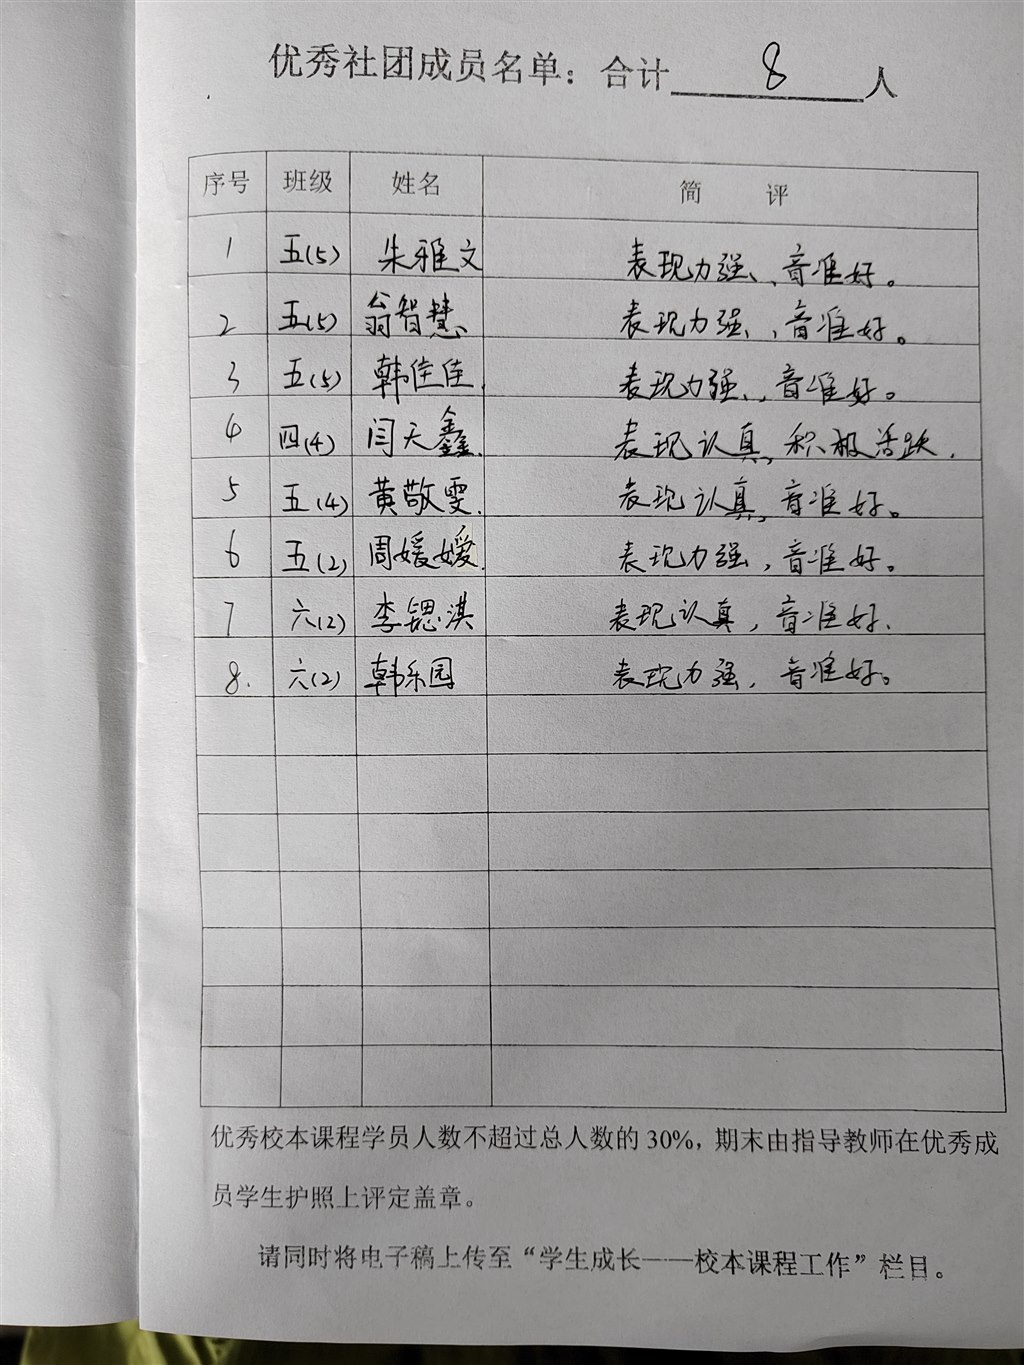 优秀社团成员名单：合计 8 人
序号 班级 姓名 简 评
1 五(5) 朱雅文 表现力强、音准好。
2 五(5) 翁智慧 表现力强、音准好。
3 五(5) 韩佳佳 表现力强、音准好。
4 四(4) 闫天鑫 表现认真、积极活跃.
5 五(4) 黄敬雯 表现认真、音准好。
6 五(2) 周媛媛 表现力强,音准好。
7 六(2) 李锶淇 表现认真,音准好.
8. 六(2) 韩乐园 表现力强,音准好。
优秀校本课程学员人数不超过总人数的 30%，期末由指导教师在优秀成
员学生护照上评定盖章。
请同时将电子稿上传至“学生成长——校本课程工作”栏目。